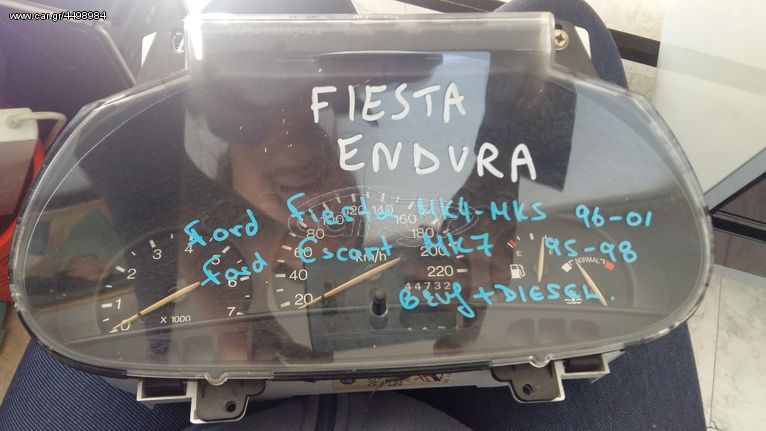 www.car.gr/4498984
FIESTA
ENDURA
Ford Fiesta MK4-MK5 96-01
Ford Escort MK7 95-98
BENZ+DIESEL
0 1 2 3 4 5 6 7
X 1000
20 40 60 80 100 120 140 160 180 200 220
km/h
44732
E
NORMAL